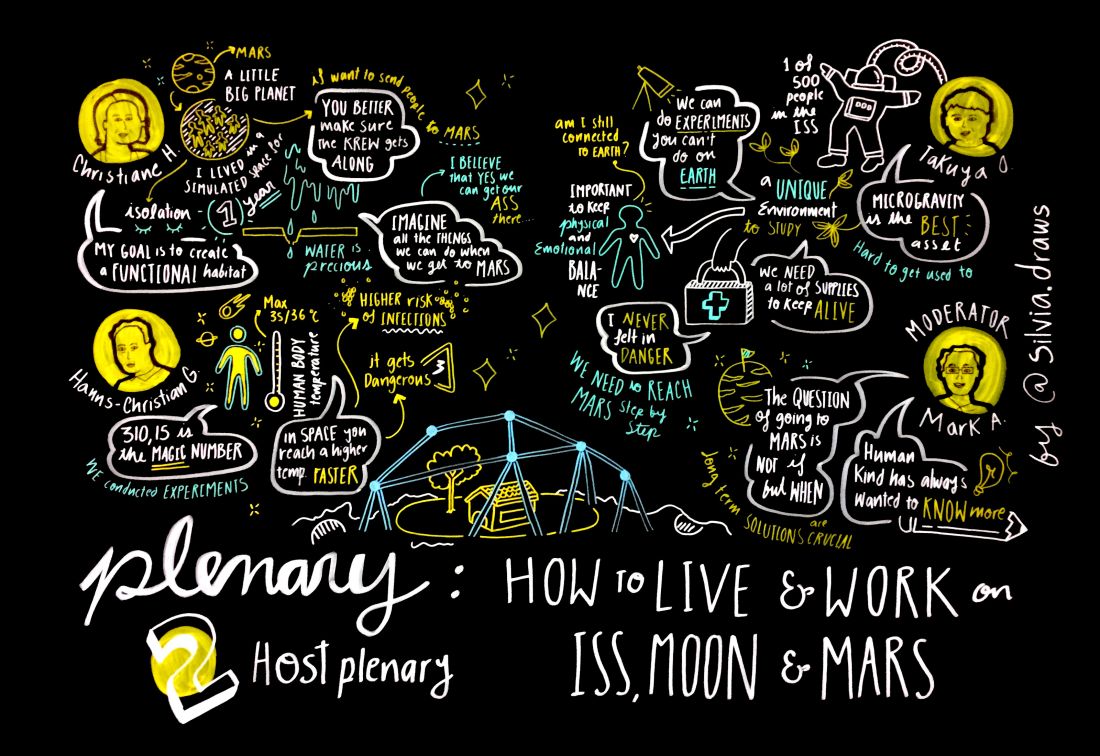 MARS
A LITTLE
BIG PLANET
Christiane H.
I LIVED in a
SIMULATED space for
1 year
isolation
MY GOAL is to create
a FUNCTIONAL habitat
if want to send people to MARS
YOU BETTER
make sure
the KREW gets
ALONG
I BELIEVE
that YES we
can get our
ASS
there...
WATER is
precious
IMAGINE
all the THINGS
we can do when
we get to MARS
Hanns-Christian G.
Max
35/36 °C
HUMAN BODY
temperature
310,15 is
the MAGIC NUMBER
WE conducted EXPERIMENTS
HIGHER risk
of INFECTIONS
it gets
Dangerous
in SPACE you
reach a higher
temp. FASTER
am I still
connected
to EARTH?
we can
do EXPERIMENTS
you can't
do on
EARTH
1 of
500
people
in the
ISS
Takuya O.
a UNIQUE
Environment
to STUDY
MICROGRAVITY
is the BEST
asset
Hard to get used to
IMPORTANT
to keep
physical
and
Emotional
BALA-
NCE
we NEED
a lot of SUPPLIES
to keep ALIVE
I NEVER
felt in
DANGER
WE NEED to REACH
MARS step by
Step
MODERATOR
Mark A.
The QUESTION
of going to
MARS is
NOT if
but WHEN
Human
Kind has always
wanted to KNOW more
long term SOLUTIONS are
CRUCIAL
by @silvia.draws
plenary: HOW to LIVE & WORK on
ISS, MOON & MARS
2 Host plenary